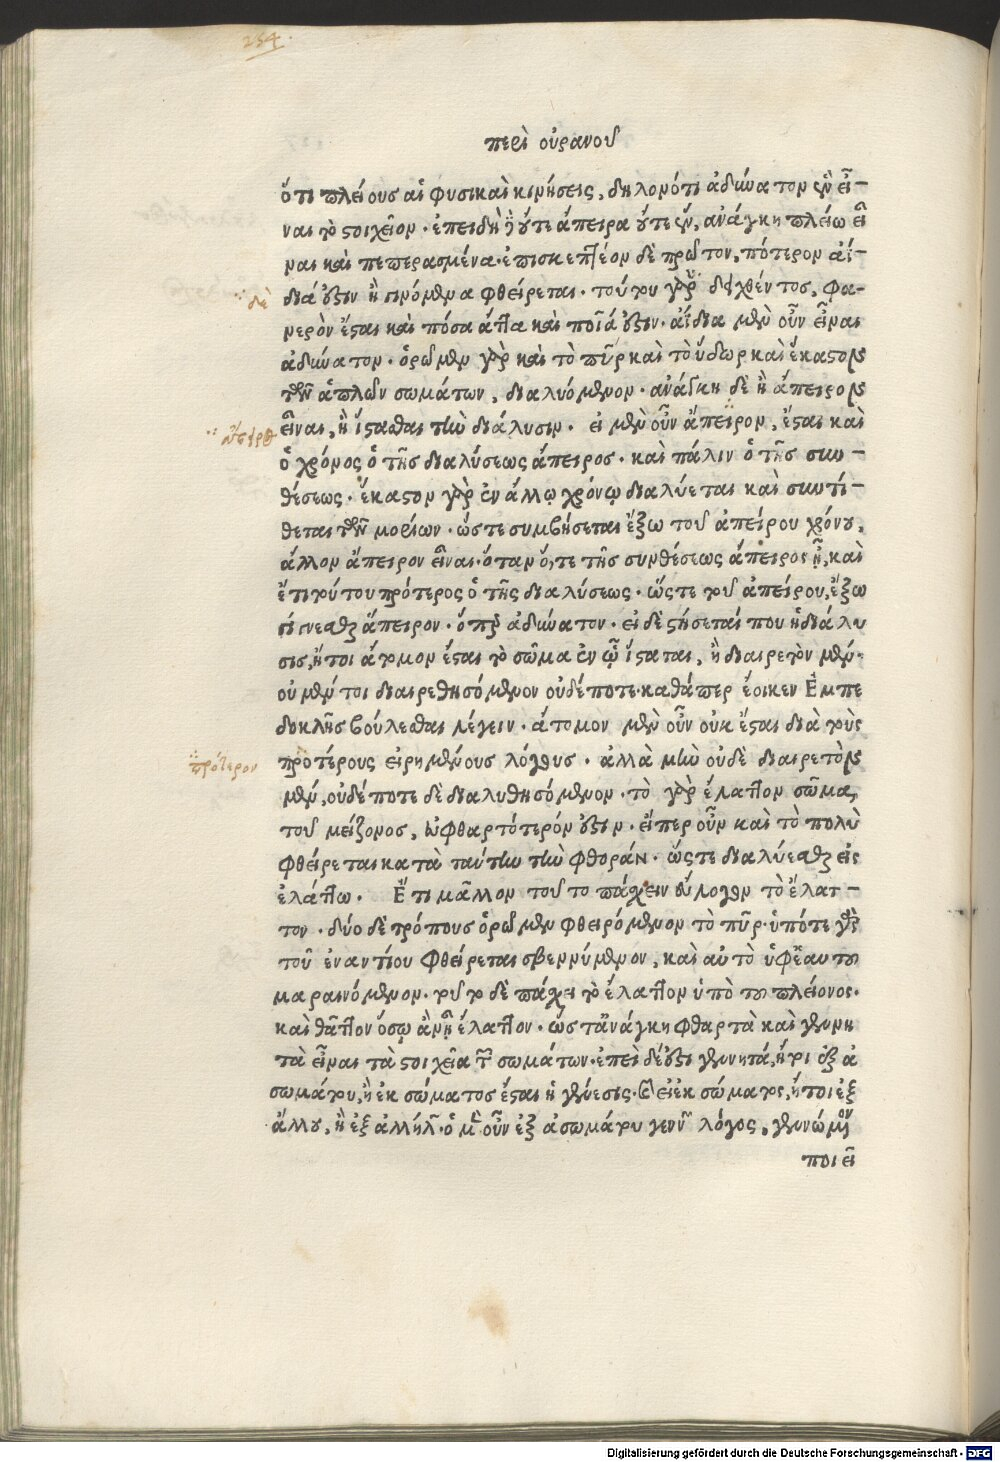 254
περὶ οὐρανοῦ
ὅτι πλείους αἱ φυσικαὶ κινήσεις, δηλονότι ἀδύνατον ἓν εἶ-
ναι τὸ στοιχεῖον. ἐπειδὴ δὲ οὔτε ἄπειρα οὔτε ἓν, ἀνάγκη πλείω εἶ
ναι καὶ πεπερασμένα. ἐπισκεπτέον δὲ πρῶτον, πότερον ἀΐ-
διά ἐστιν ἢ γινόμενα φθείρεται. τούτου γὰρ δειχθέντος, φα-
νερὸν ἔσται καὶ πόσα ἄττα καὶ ποῖά ἐστιν. ἀΐδια μὲν οὖν εἶναι
ἀδύνατον. ὁρῶμεν γὰρ καὶ τὸ πῦρ καὶ τὸ ὕδωρ καὶ ἕκαστον
τῶν ἁπλῶν σωμάτων, διαλυόμενον. ἀνάγκη δὲ ἢ ἄπειρον
εἶναι, ἢ ἵστασθαι τὴν διάλυσιν. εἰ μὲν οὖν ἄπειρον, ἔσται καὶ
ὁ χρόνος ὁ τῆς διαλύσεως ἄπειρος. καὶ πάλιν ὁ τῆς συν-
θέσεως. ἕκαστον γὰρ ἐν ἄλλῳ χρόνῳ διαλύεται καὶ συντί-
θεται τῶν μορίων. ὥστε συμβήσεται ἔξω τοῦ ἀπείρου χρόνου,
ἄλλον ἄπειρον εἶναι. ὅταν ὅ, τε τῆς συνθέσεως ἄπειρος ᾖ, καὶ
ἔτι τούτου πρότερος ὁ τῆς διαλύσεως. ὥστε τοῦ ἀπείρου, ἔξω
γίνεσθαι ἄπειρον. ὅπερ ἀδύνατον. εἰ δὲ στήσεταί που ἡ διάλυ
σις, ἤτοι ἄτομον ἔσται τὸ σῶμα ἐν ᾧ ἵσταται, ἢ διαιρετὸν μέν.
οὐ μέν τοι διαιρεθησόμενον οὐδέποτε. καθάπερ ἔοικεν Ἐμπε
δοκλῆς βούλεσθαι λέγειν. ἄτομον μὲν οὖν οὐκ ἔσται διὰ τοὺς
προτέρους εἰρημένους λόγους. ἀλλὰ μὴν οὐδὲ διαιρετὸν
μέν, οὐδέποτε δὲ διαλυθησόμενον. τὸ γὰρ ἔλαττον σῶμα,
τοῦ μείζονος, εὐφθαρτότερόν ἐστιν. εἴπερ οὖν καὶ τὸ πολὺ
φθείρεται κατὰ ταύτην τὴν φθοράν. ὥστε διαλύεσθαι εἰς
ἐλάττω. Ἔτι μᾶλλον τοῦτο πάσχειν εὔλογον τὸ ἔλατ-
τον. δύο δὲ τρόπους ὁρῶμεν φθειρόμενον τὸ πῦρ. ὑπότε γὰρ
τοῦ ἐναντίου φθείρεται σβεννύμενον, καὶ αὐτὸ ὑφ' ἑαυτοῦ
μαραινόμενον. τοῦτο δὲ πάσχει τὸ ἔλαττον ὑπὸ τοῦ πλείονος.
καὶ θᾶττον ὅσῳ ἂν ᾖ ἔλαττον. ὥστ' ἀνάγκη φθαρτὰ καὶ γενη
τὰ εἶναι τὰ στοιχεῖα τῶν σωμάτων. ἐπεὶ δέ ἐστι γενητά, ἤτοι ἐξ ἀ
σωμάτου, ἢ ἐκ σώματος ἔσται ἡ γένεσις. καὶ εἰ ἐκ σώματος, ἤτοι ἐξ
ἄλλου, ἢ ἐξ ἀλλήλων. ὁ μὲν οὖν ἐξ ἀσωμάτου γεννῶν λόγος, γενώμενον
ποιεῖ
δὲ
πρότερον